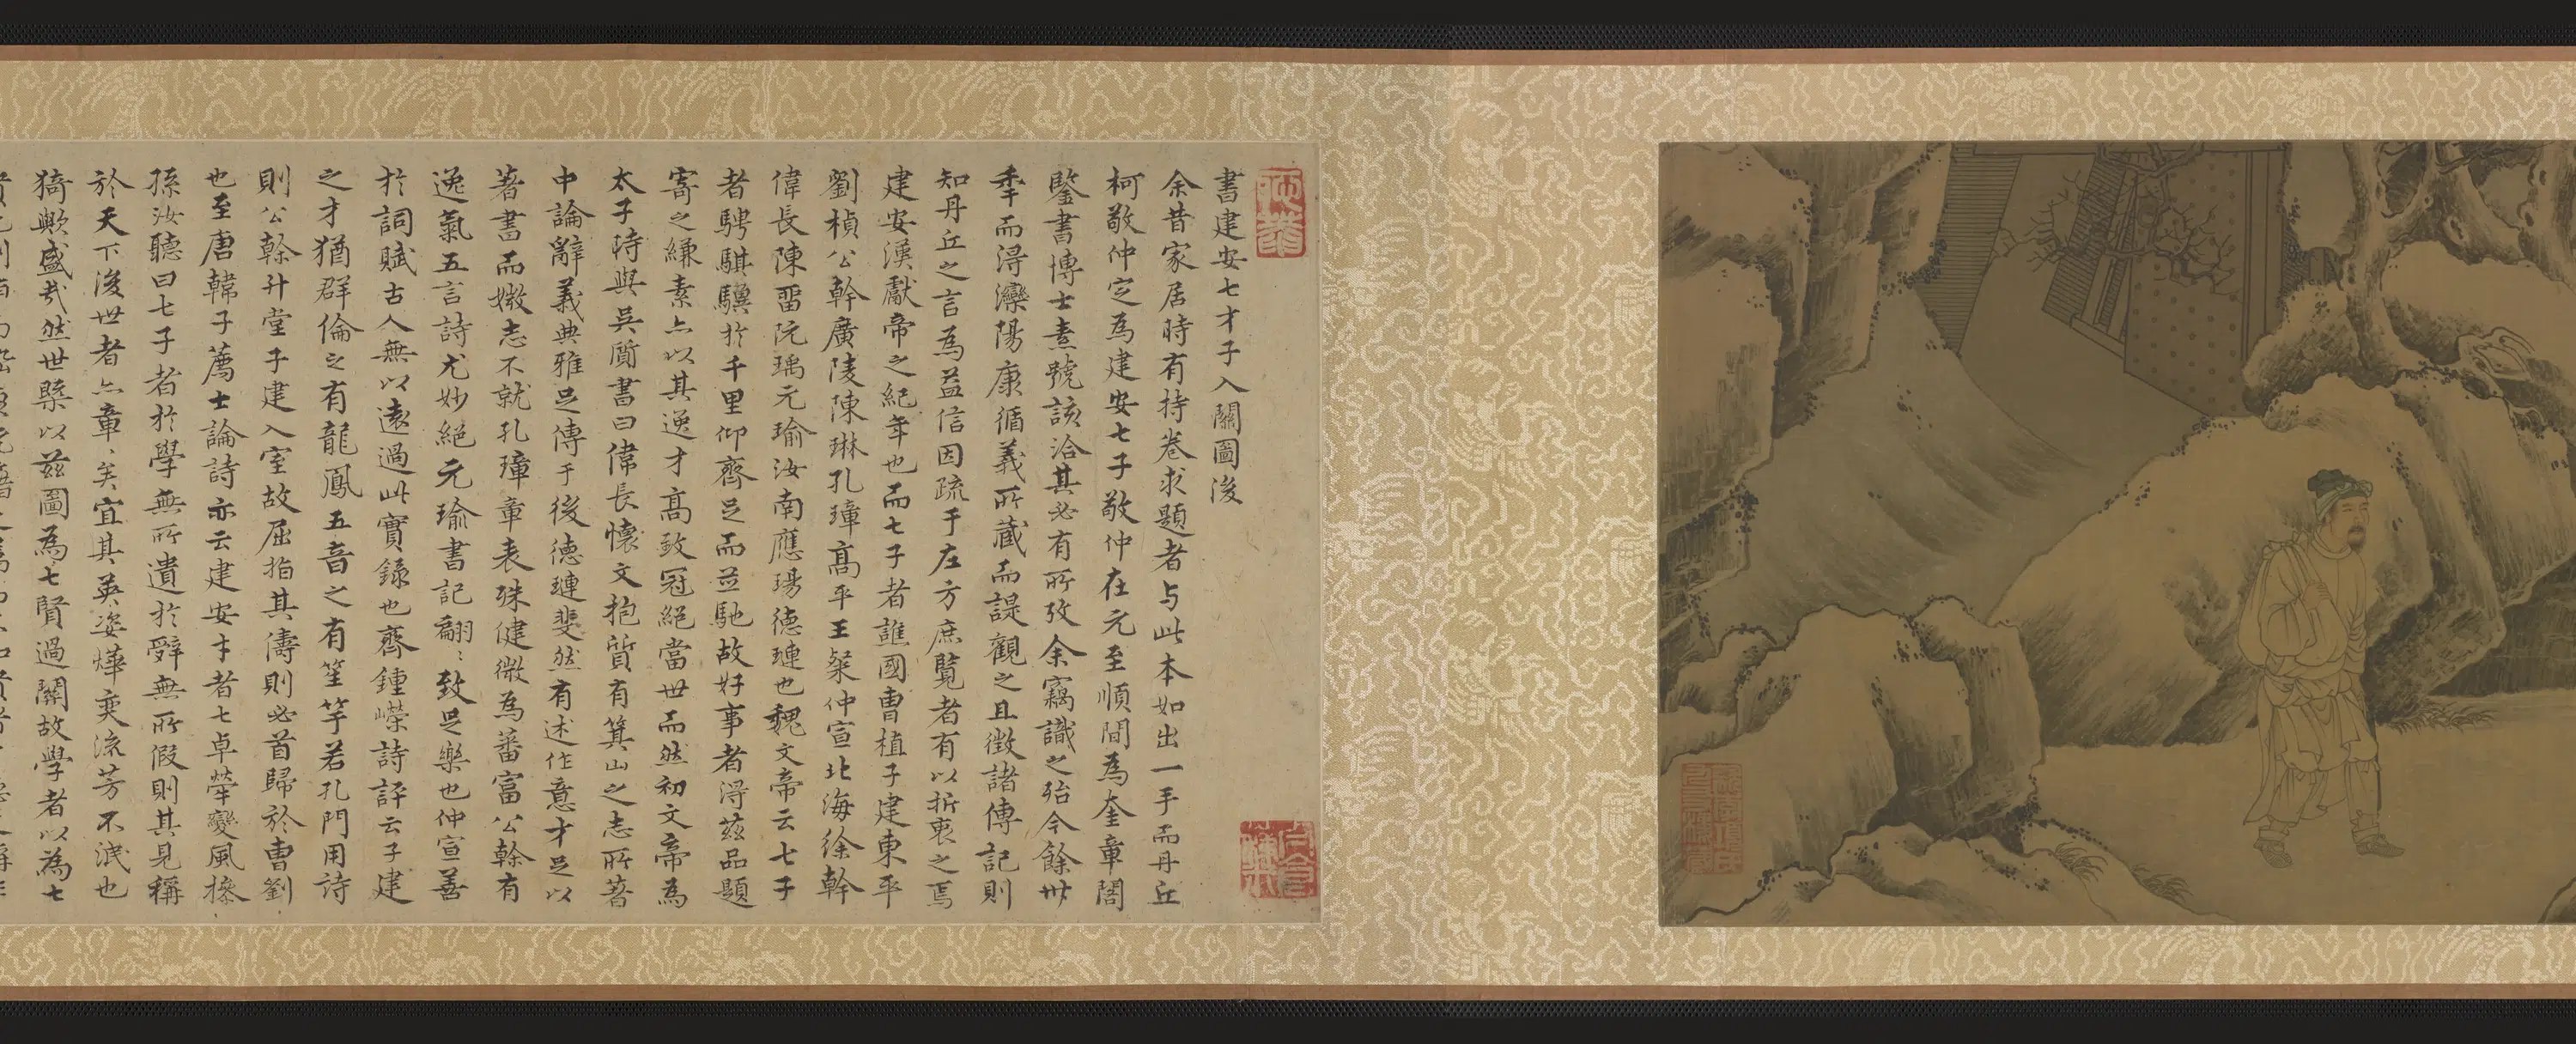 書建安七才子入關圖後
余昔家居時有持卷求題者与此本如出一手而丹丘
柯敬仲定為建安七子敬仲在元至順間為奎章閣
鑒書博士素號該洽其必有所攷余竊識之殆今餘卅
季而淂灤陽康循義所藏而諟觀之且徵諸傳記則
知丹丘之言為益信因疏于左方庶覽者有以折衷之焉
建安漢獻帝之紀年也而七子者譙國曹植子建東平
劉楨公幹廣陵陳琳孔璋高平王粲仲宣北海徐幹
偉長陳畱阮瑀元瑜汝南應瑒德璉也魏文帝云七子
者騁騏驥於千里仰齊足而並馳故好事者淂茲品題
寄之縑素亦以其逸才高致冠絕當世而然初文帝為
太子時與吳質書曰偉長懷文抱質有箕山之志所著
中論辭義典雅足傳于後德璉斐然有述作意才足以
著書而媺志不就孔璋章表殊健微為蕃富公幹有
逸氣五言詩尤妙絕元瑜書記翩〻致足樂也仲宣善
於詞賦古人無以遠過此實錄也齊鍾嶸詩評云子建
之才猶群倫之有龍鳳五音之有笙竽若孔門用詩
則公幹升堂子建入室故屈指其儔則必首歸於曹劉
也至唐韓子薦士論詩亦云建安才者七卓犖變風操
孫汝聽曰七子者於學無所遺於辭無所假則其見稱
於天下後世者亦章〻矣宜其英姿燁奕流芳不泯也
猗歟盛哉然世槩以茲圖為七賢過關故學者以為七